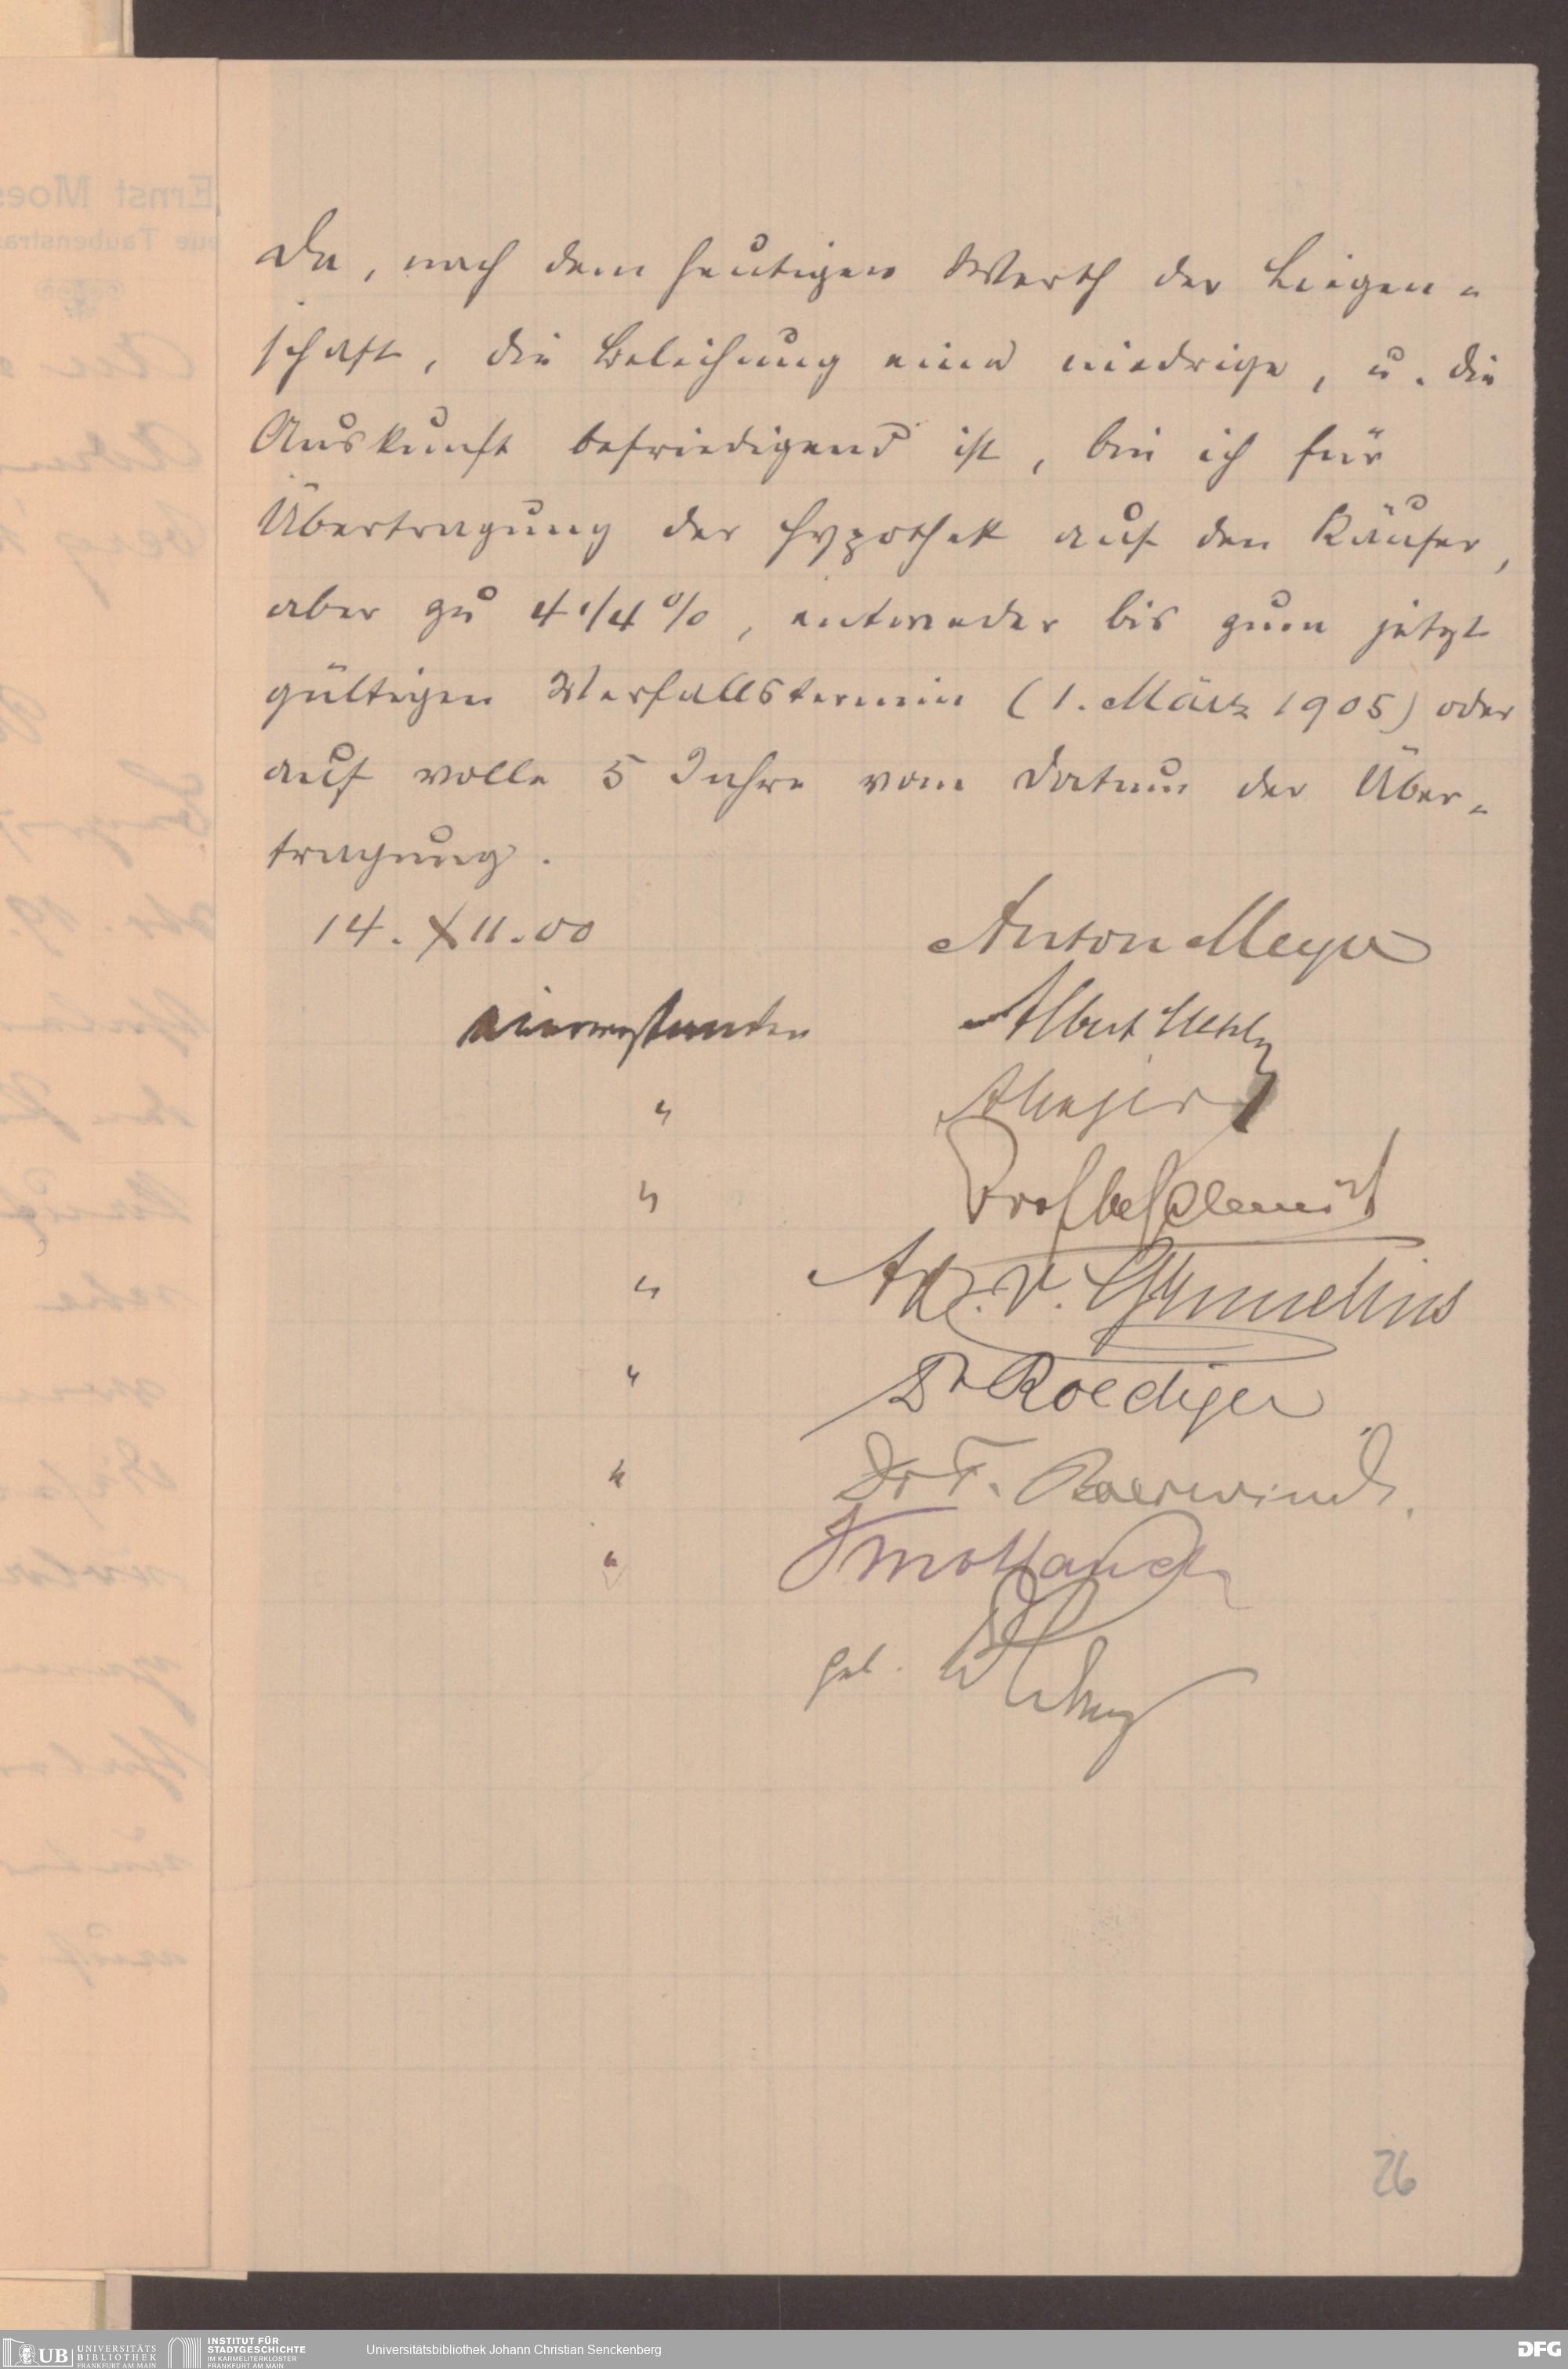 Da, nach dem heutigen Werth der Liegen-
schaft, die Beleihung eine niedrige, u. die
Auskunft befriedigend ist, bin ich für
Übertragung der Hypothek auf den Käufer,
aber zu 4 1/4 %, entweder bis zum jetzt
gültigen Verfallstermin (1. März 1905) oder
auf volle 5 Jahre vom Datum der Über-
tragung.
14. XII. 00 Anton Meyer
einverstanden Albert
"
"
" Ad. v.
" Dr Roediger
" Dr F. Baerwind.
"
gel.
26
UB UNIVERSITÄTS
BIBLIOTHEK
FRANKFURT AM MAIN
INSTITUT FÜR
STADTGESCHICHTE
IM KARMELITERKLOSTER
FRANKFURT AM MAIN
Universitätsbibliothek Johann Christian Senckenberg
DFG